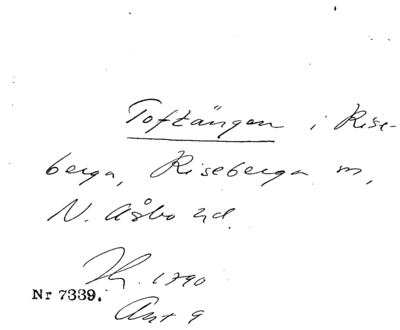 Toftängen i Rise-
berga, Riseberga sn,
N. Åsbo hd.
1790
Nr 7339.
Akt 9